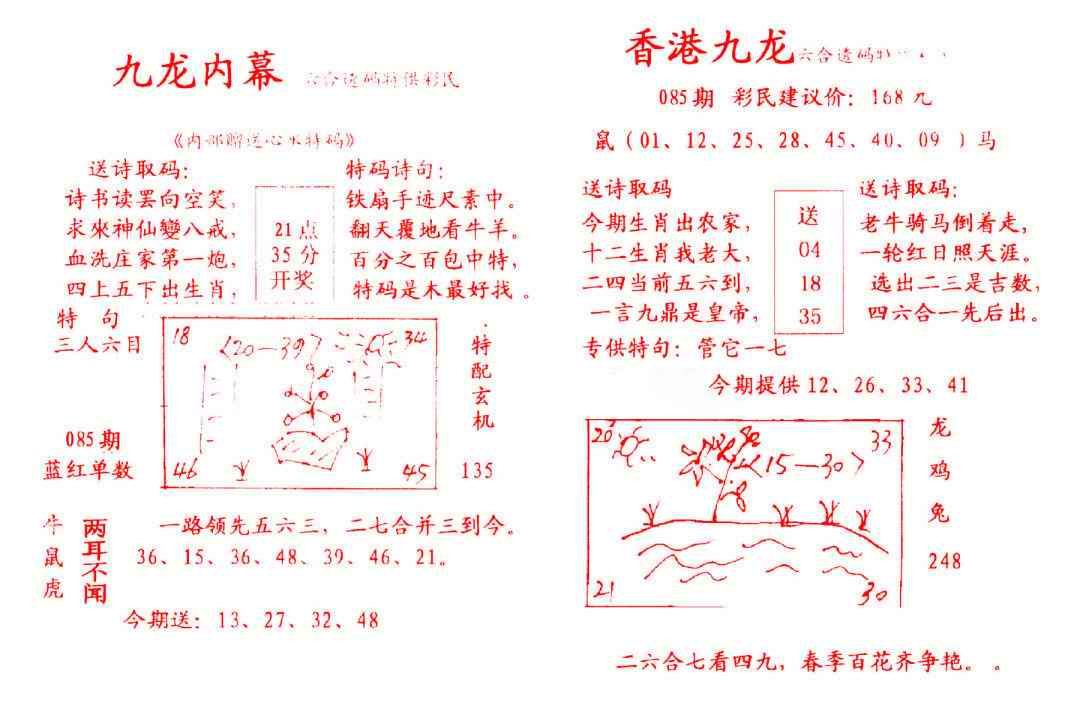 九龙内幕 六合透码特供彩民
《内部赠送心水特码》
送诗取码：
诗书读罢向空笑，
求來神仙變八戒，
血洗庄家第一炮，
四上五下出生肖，
21点
35分
开奖
特码诗句：
铁扇手迹尺素中。
翻天覆地看牛羊。
百分之百包中特，
特码是木最好找。
特 句
三人六目
085期
蓝红单数
18
〈20—39〉
34
46
45
特配玄机
135
牛鼠虎
两耳不闻
一路领先五六三，二七合并三到今。
36、15、36、48、39、46、21。
今期送：13、27、32、48
香港九龙 六合透码特
085期 彩民建议价：168元
鼠（01、12、25、28、45、40、09）马
送诗取码
今期生肖出农家，
十二生肖我老大，
二四当前五六到，
一言九鼎是皇帝，
送
04
18
35
送诗取码：
老牛骑马倒着走，
一轮红日照天涯。
选出二三是吉数，
四六合一先后出。
专供特句：管它一七
今期提供12、26、33、41
20
33
〈15—30〉
21
30
龙
鸡
兔
248
二六合七看四九，春季百花齐争艳。。